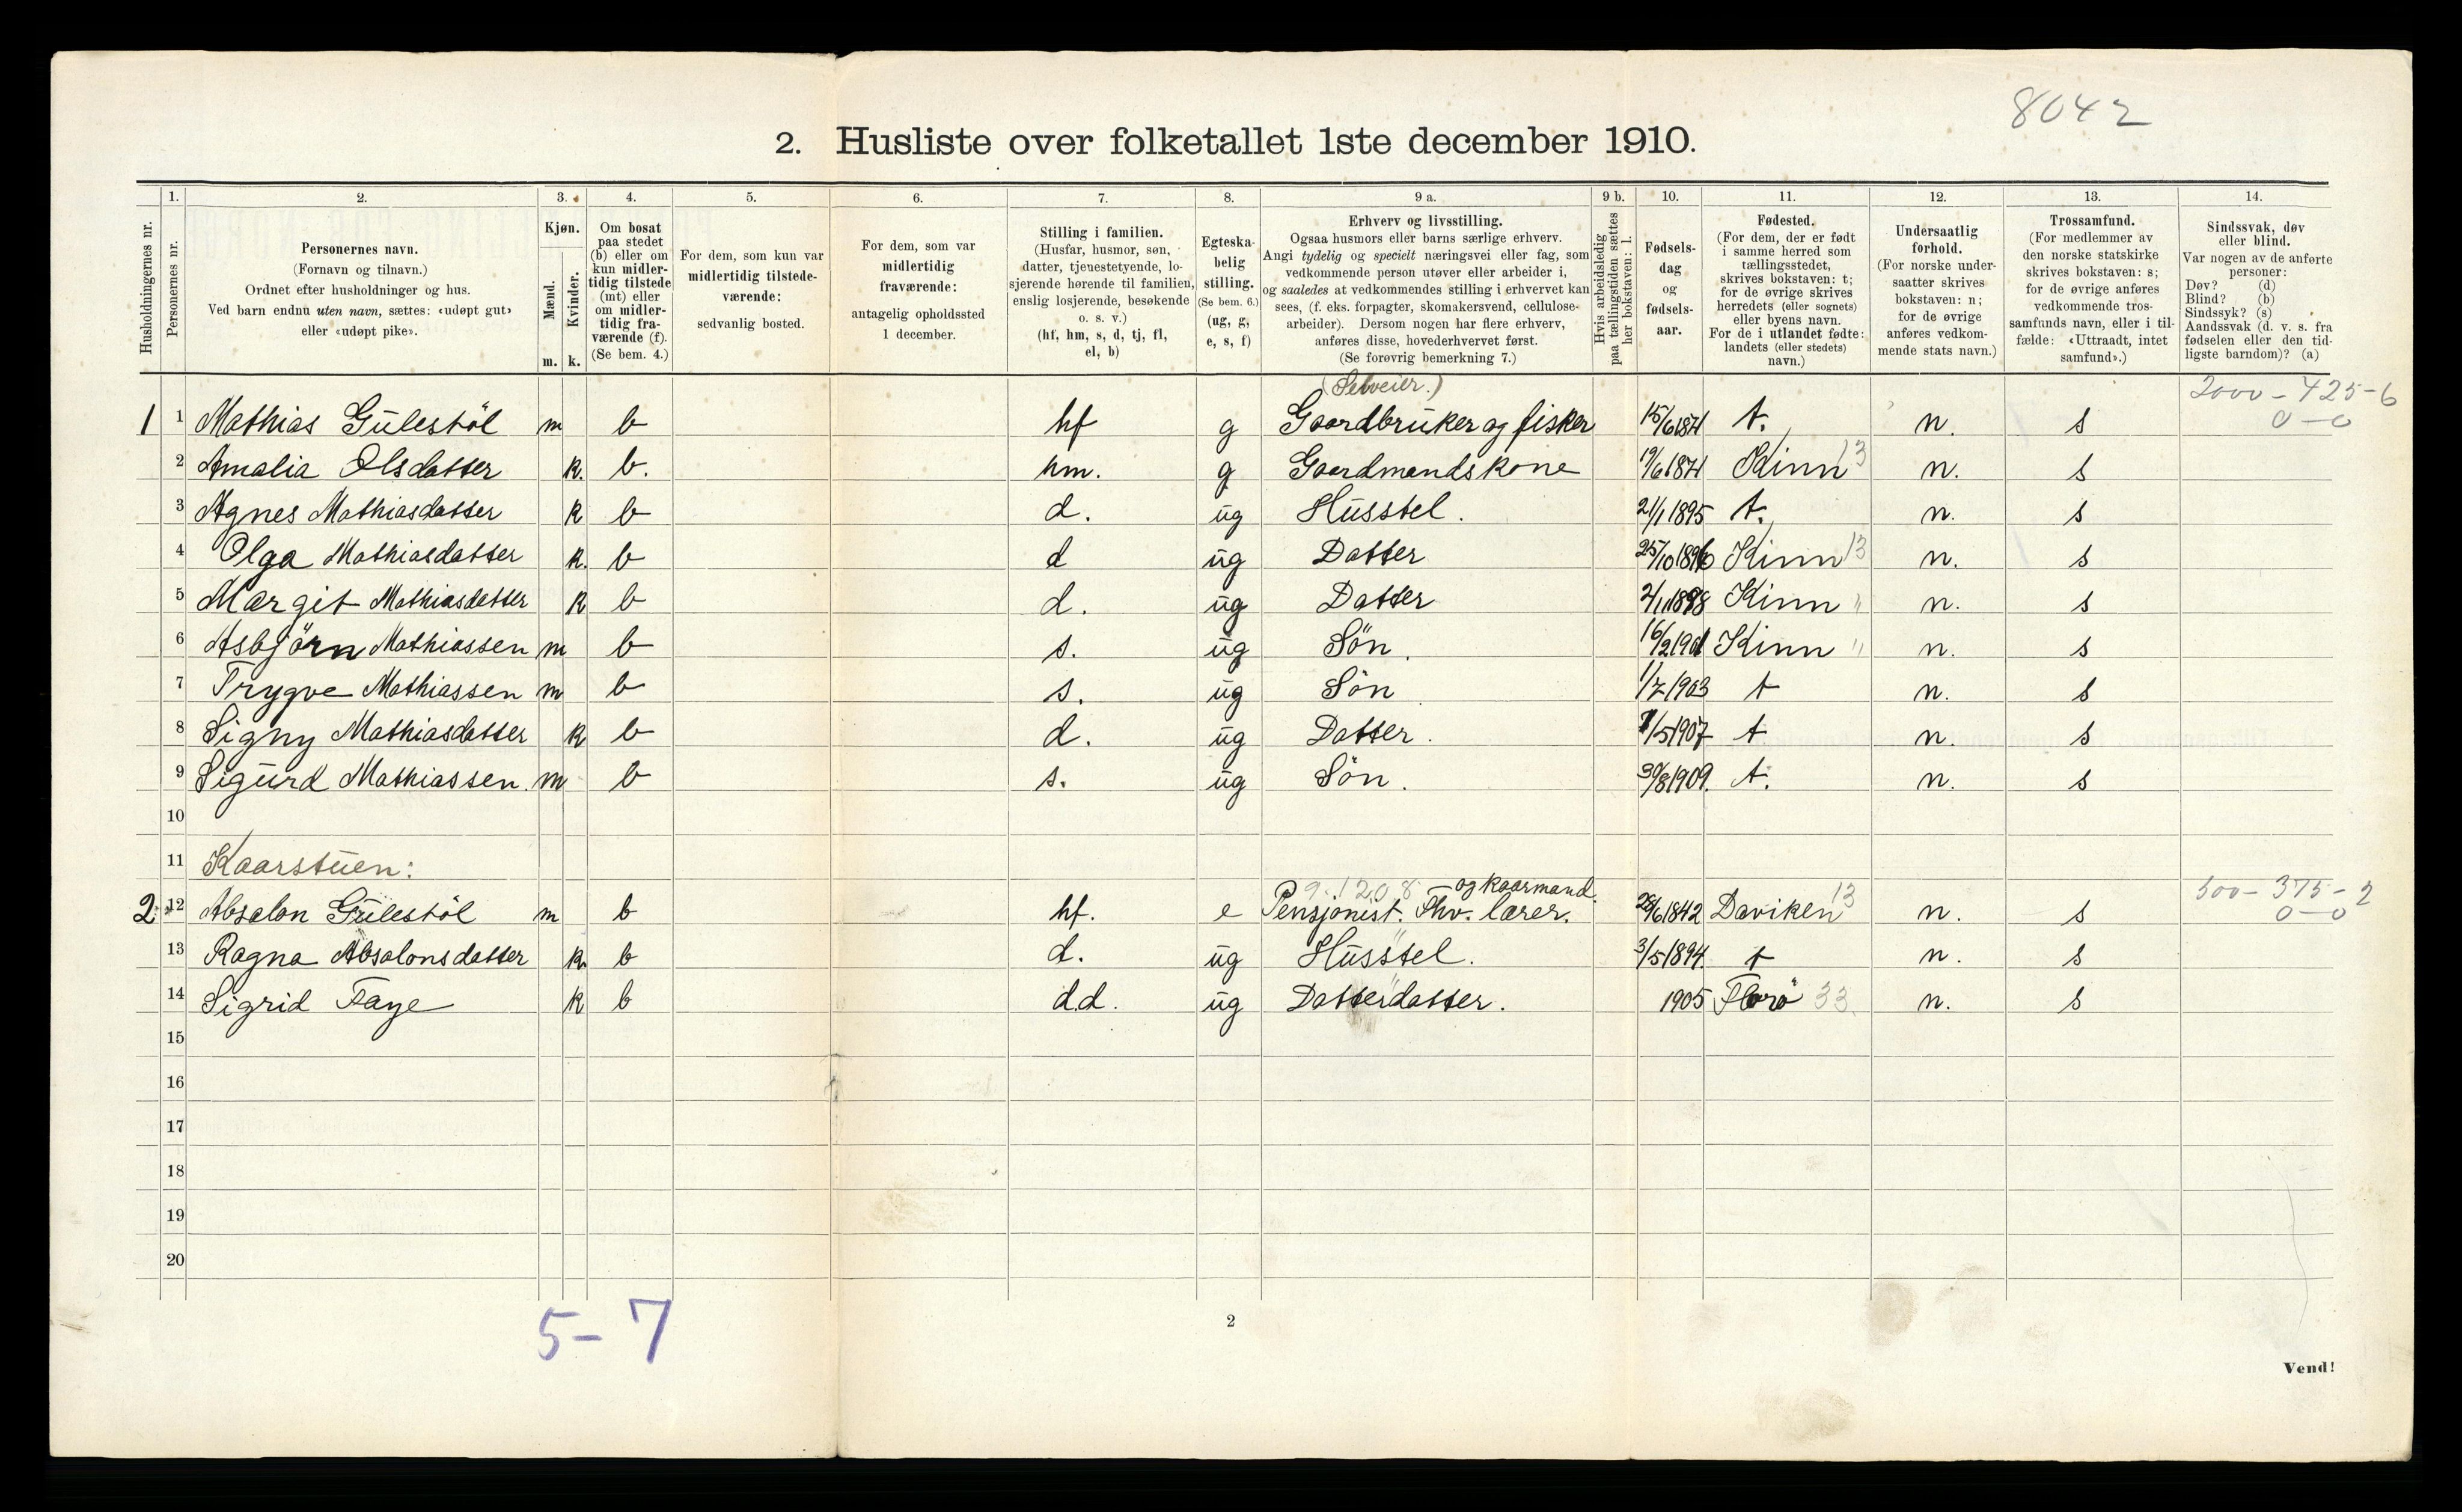 8042
2. Husliste over folketallet 1ste december 1910.
Husholdningernes nr.
1.
Personernes nr.
2.
Personernes navn.
(Fornavn og tilnavn.)
Ordnet efter husholdninger og hus.
Ved barn endnu uten navn, sættes: «udøpt gut»
eller «udøpt pike».
3.
Kjøn.
Mænd.
Kvinder.
m. k.
4.
Om bosat
paa stedet
(b) eller om
kun midler-
tidig tilstede
(mt) eller
om midler-
tidig fra-
værende (f).
(Se bem. 4.)
5.
For dem, som kun var
midlertidig tilstede-
værende:
sedvanlig bosted.
6.
For dem, som var
midlertidig
fraværende:
antagelig opholdssted
1 december.
7.
Stilling i familien.
(Husfar, husmor, søn,
datter, tjenestetyende, lo-
sjerende hørende til familien,
enslig losjerende, besøkende
o. s. v.)
(hf, hm, s, d, tj, fl,
el, b)
8.
Egteska-
belig
stilling.
(Se bem. 6.)
(ug, g,
e, s, f)
9 a.
Erhverv og livsstilling.
Ogsaa husmors eller barns særlige erhverv.
Angi tydelig og specielt næringsvei eller fag, som
vedkommende person utøver eller arbeider i,
og saaledes at vedkommendes stilling i erhvervet kan
sees, (f. eks. forpagter, skomakersvend, cellulose-
arbeider). Dersom nogen har flere erhverv,
anføres disse, hovederhvervet først.
(Se forøvrig bemerkning 7.)
9 b.
Hvis arbeidsledig
paa tællingstiden sættes
her bokstaven: l.
10.
Fødsels-
dag
og
fødsels-
aar.
11.
Fødested.
(For dem, der er født
i samme herred som
tællingsstedet,
skrives bokstaven: t;
for de øvrige skrives
herredets (eller sognets)
eller byens navn.
For de i utlandet fødte:
landets (eller stedets)
navn.)
12.
Undersaatlig
forhold.
(For norske under-
saatter skrives
bokstaven: n;
for de øvrige
anføres vedkom-
mende stats navn.)
13.
Trossamfund.
(For medlemmer av
den norske statskirke
skrives bokstaven: s;
for de øvrige anføres
vedkommende tros-
samfunds navn, eller i til-
fælde: «Uttraadt, intet
samfund».)
14.
Sindssvak, døv
eller blind.
Var nogen av de anførte
personer:
Døv? (d)
Blind? (b)
Sindssyk? (s)
Aandssvak (d. v. s. fra
fødselen eller den tid-
ligste barndom)? (a)
(Selveier.) 2000 - 425 - 6
1 1 Mathias Gülestöl m b hf g Gaardbrüker og fisker 15/6 1871 t. n. s 0 - 0
2 Amalia Olsdatter k. b. hm. g Gaardmandskone 19/6 1871 Kinn 13 n. s
3 Agnes Mathiasdatter k b d. üg Hüsstel. 21/1 1895 t. n. s
4 Olga Mathiasdatter k. b d üg Datter 25/10 1896 Kinn 13 n. s
5 Margit Mathiasdatter k b d. üg Datter 2/1 1898 Kinn " n. s
6 Asbjörn Mathiassen m b s. üg Sön. 16/2 1901 Kinn " n. s
7 Trygve Mathiassen m b s. üg Sön 1/7 1903 t n. s
8 Signy Mathiasdatter k b d. üg Datter. 7/5 1907 t n. s
9 Sigürd Mathiassen. m b s. üg Sön. 30/8 1909. t. n. s
10
11 Kaarstüen:
9. 1208 og kaarmand. 500 - 375 - 2
2. 12 Absalon Gülestöl m b hf. e Pensjonist. Fhv. lærer. 28/6 1842 Daviken 13 n. s 0 - 0
13 Ragna Absalonsdatter k b d. üg Hüsstel. 3/5 1894. t n. s
14 Sigrid Faye k b d.d. üg Datterdatter. 1905 Florö 33. n. s
15
16
17
18
19
20
5 - 7
2
Vend!